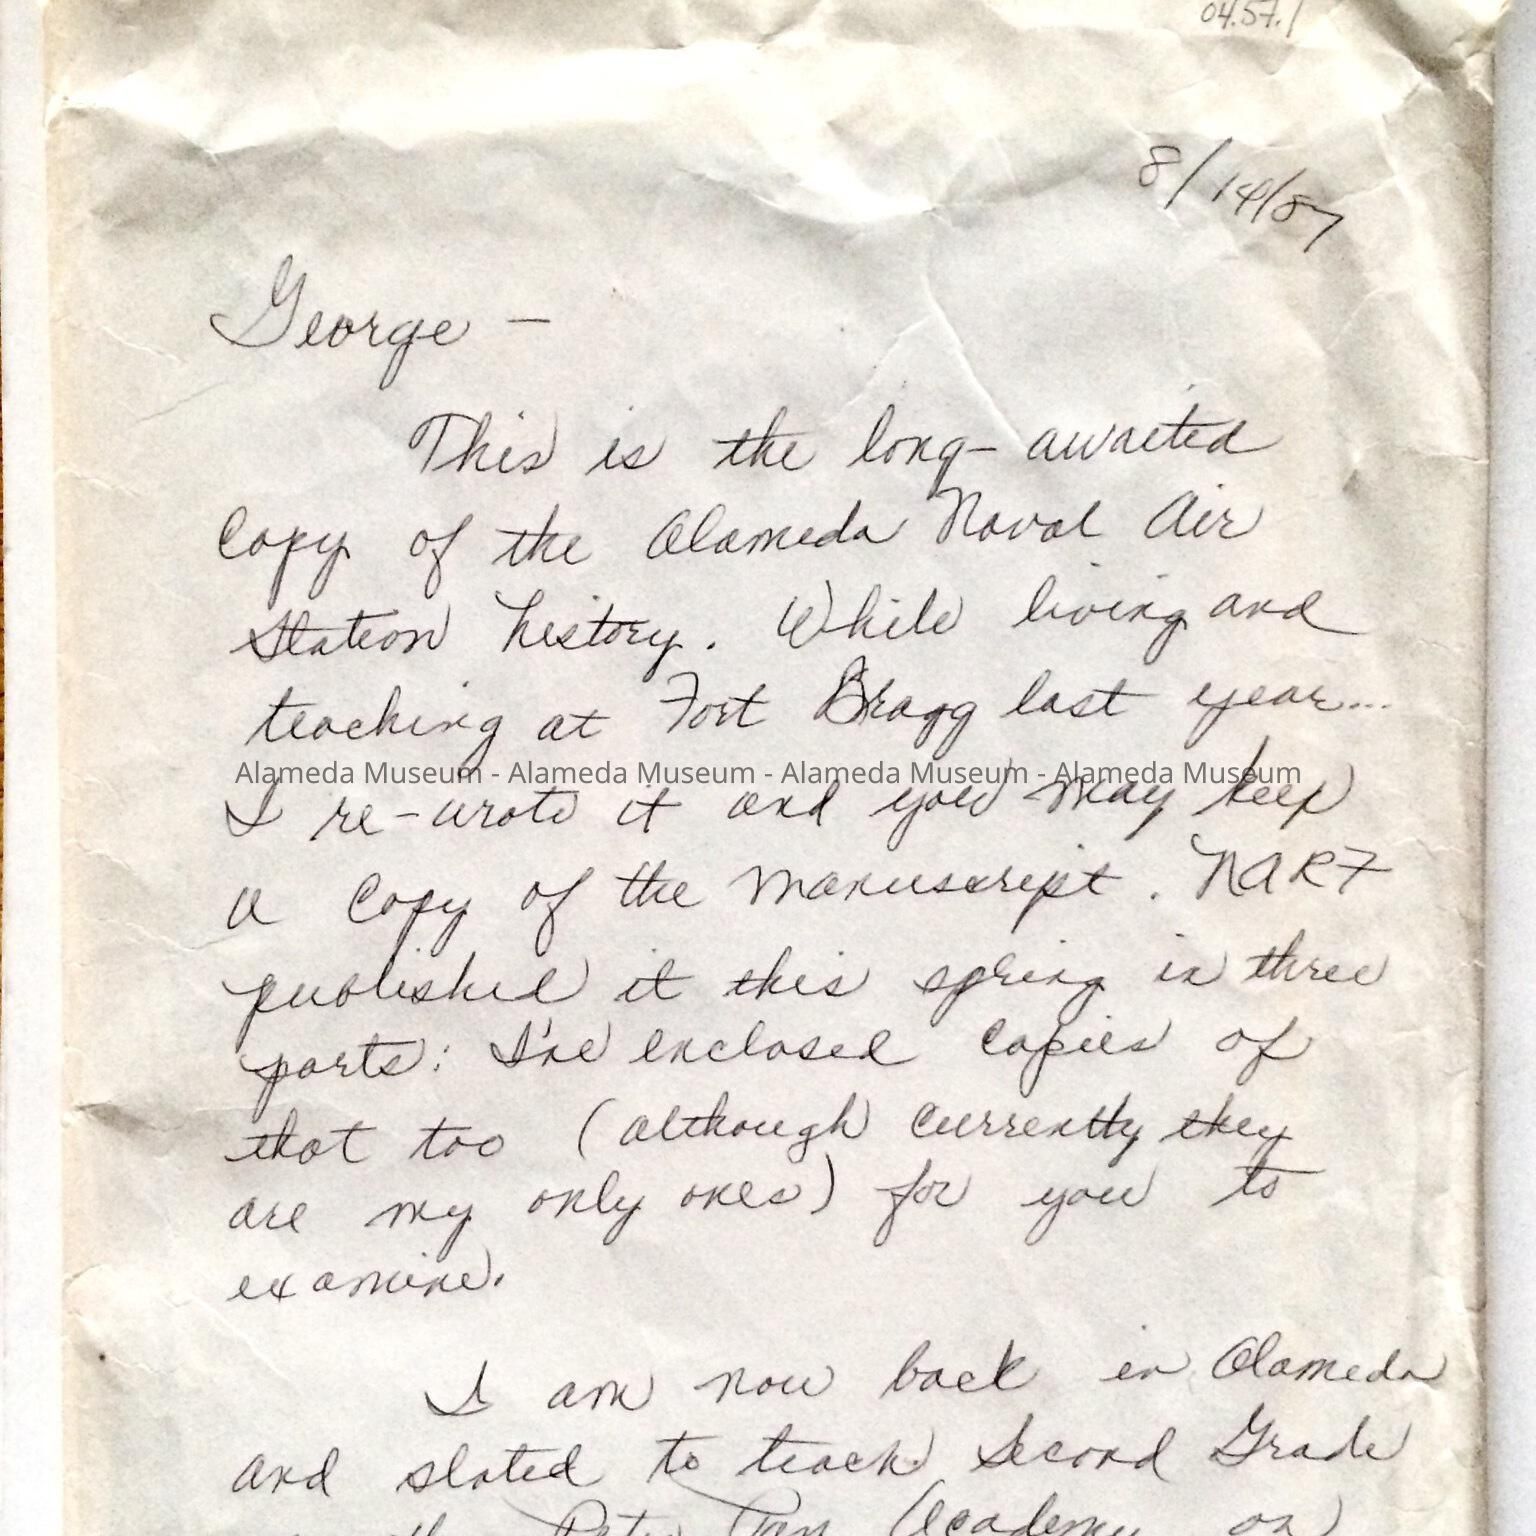 04.57.1
8/14/87
George —
This is the long-awaited
Copy of the Alameda Naval Air
Station history. While living and
teaching at Fort Bragg last year...
Alameda Museum - Alameda Museum - Alameda Museum - Alameda Museum
I re-wrote it and you may keep
a copy of the manuscript. NARF
published it this spring in three
parts: I've enclosed copies of
that too (although currently they
are my only ones) for you to
examine.
I am now back in Alameda
and slated to teach Second Grade
Peter Pan Academy on